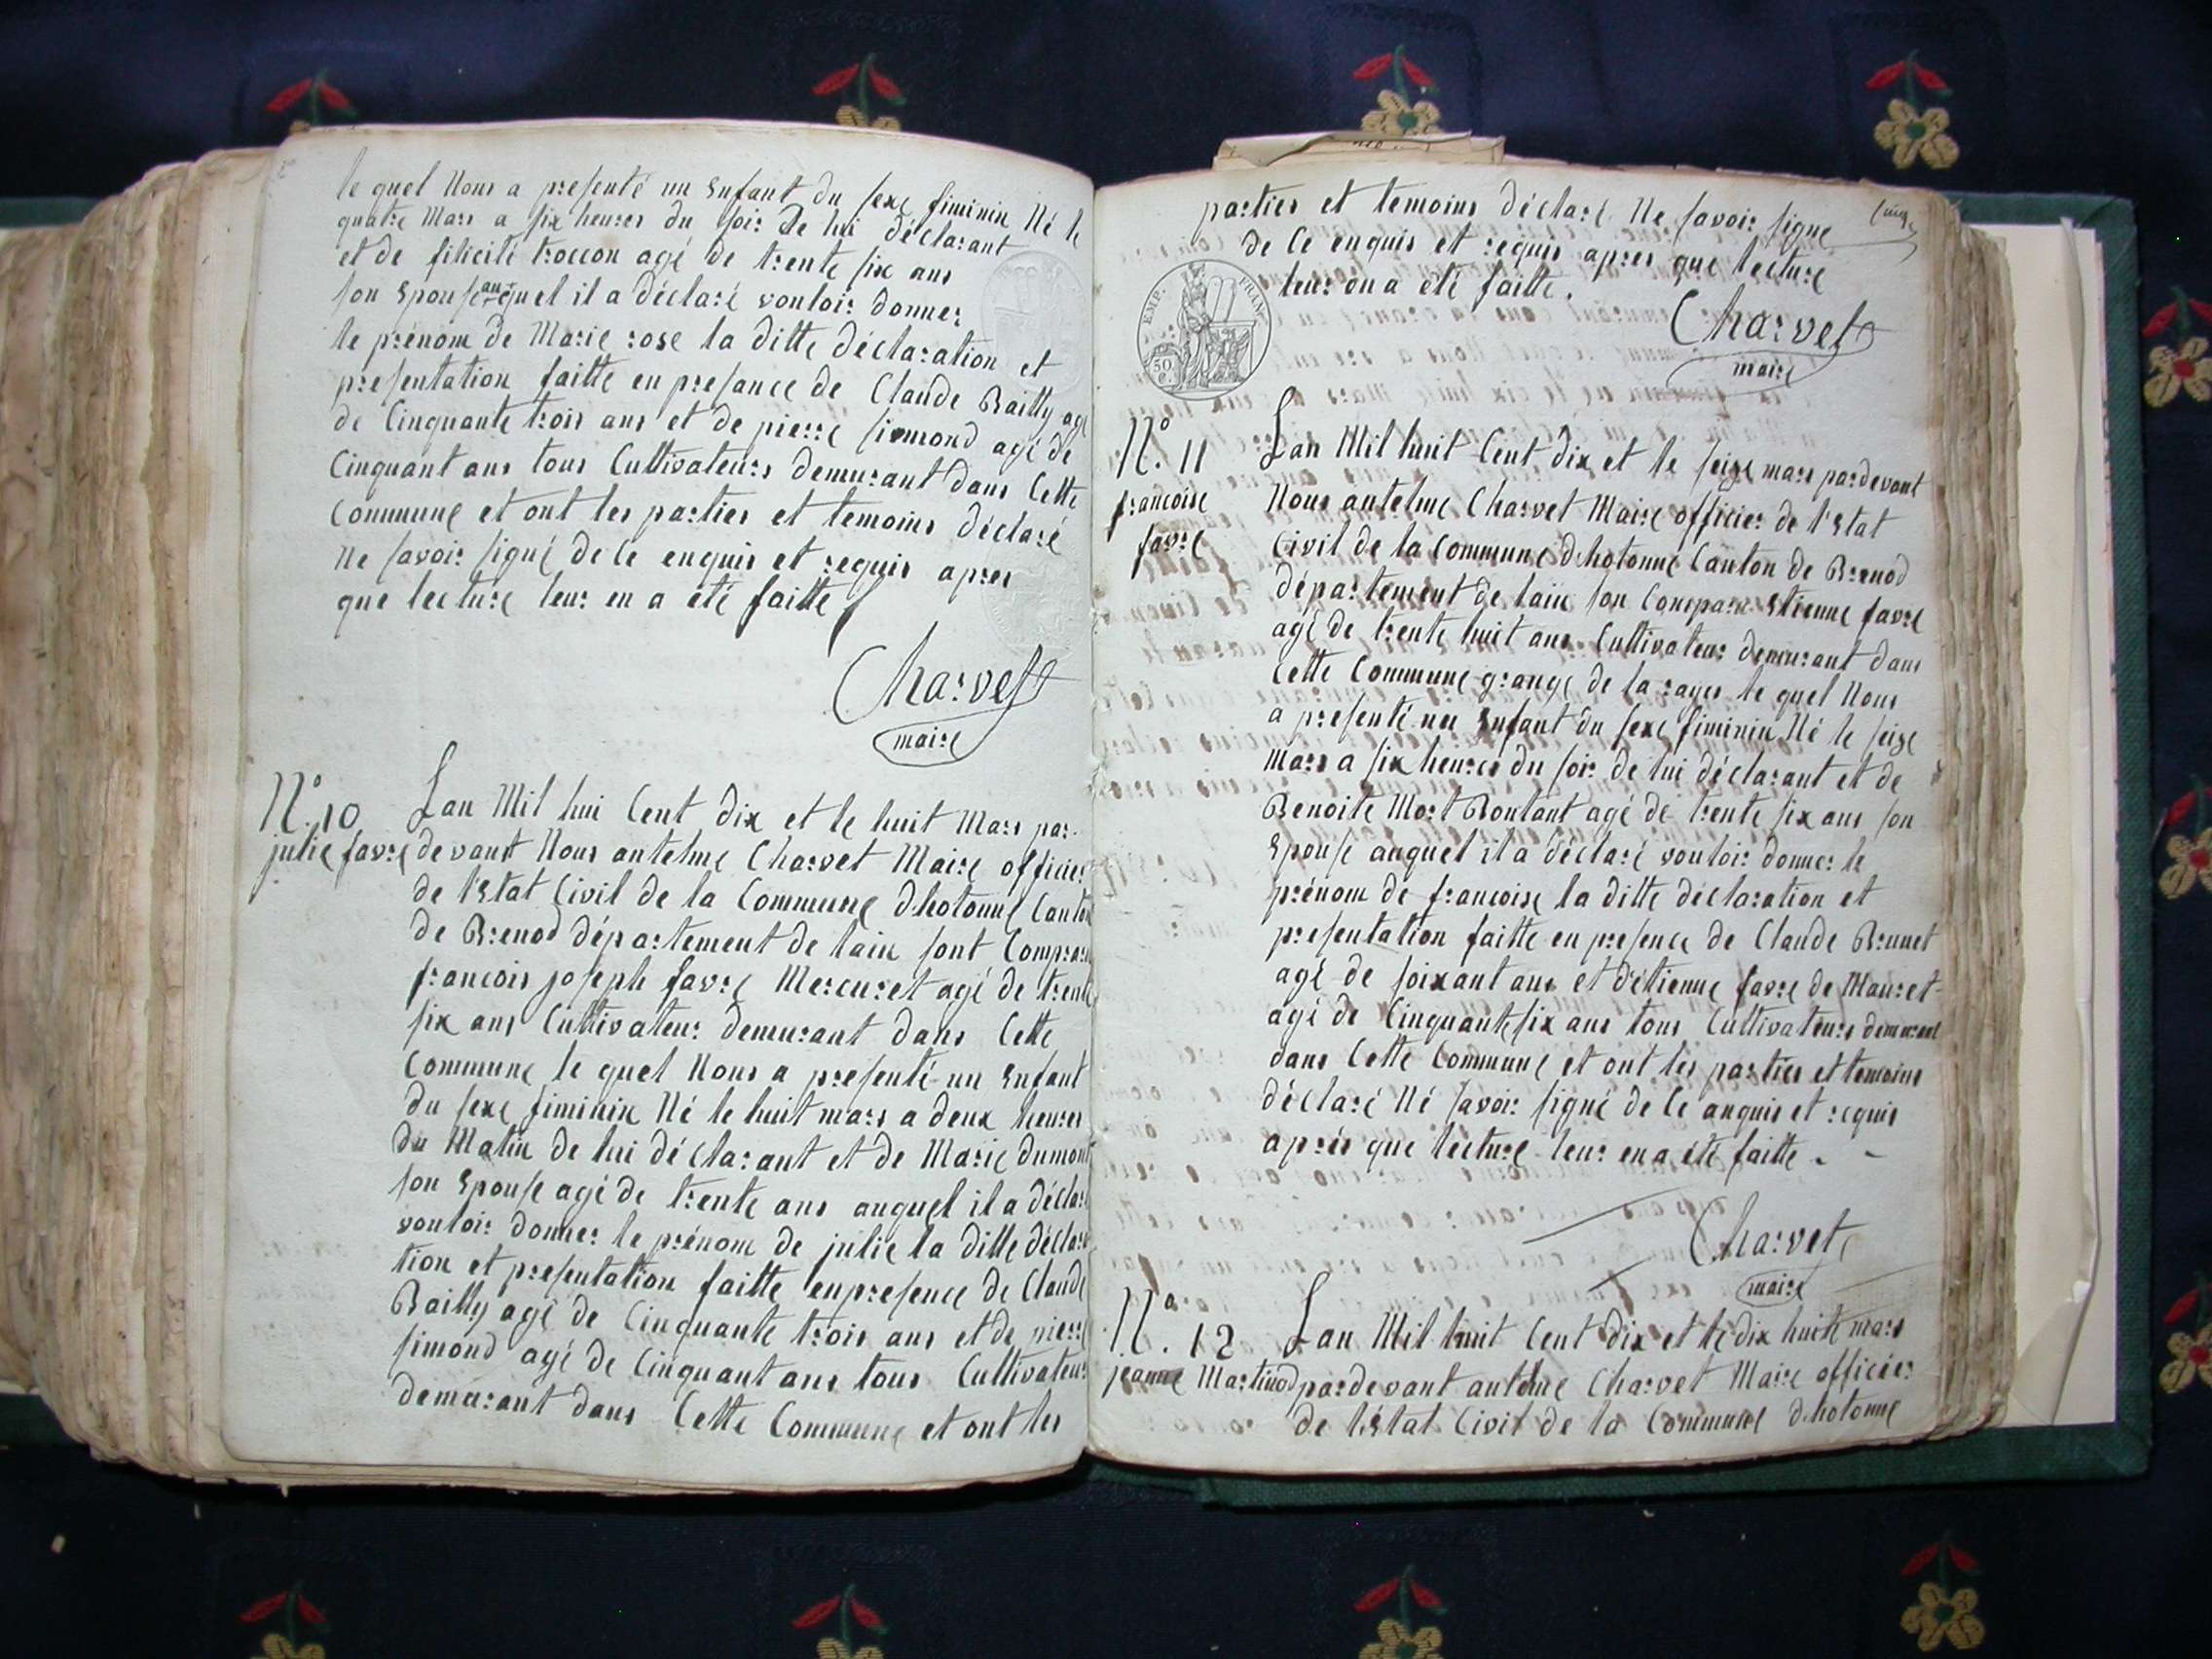 le quel Nous a presenté un Enfant du sexe fiminin Né le
quatre Mars a six heures du soir de lui déclarant
et de filicité troccon agé de trente six ans
son Epouse auquel il a déclaré vouloir donner
le prénom de Marie rose la ditte déclaration et
presentation faitte en presance de Claude Bailly agé
de Cinquante trois ans et de pierre simond agé de
Cinquant ans tous Cultivateurs demurant dans Cette
Commune et ont les parties et temoins déclaré
Ne savoir signé de Ce enquis et requis apres
que lecture leur en a été faitte
Charvet
maire
N°. 10
julie favre
Lan Mil hui Cent dix et le huit Mars par
devant Nous antelme Charvet Maire officier
de l'Etat Civil de la Commune d'hotonne Canton
de Brenod département de lain sont Compraru
francois joseph favre Mercuret agé de trente
six ans Cultivateur demurant dans Cette
Commune le quel Nous a presenté un Enfant
du sexe fiminin Né le huit mars a deux heures
du Matin de lui déclarant et de Marie dumont
son Epouse agé de trente ans auquel il a déclaré
vouloir donner le prénom de julie la ditte déclara
tion et presentation faitte en presence de Claude
Bailly agé de Cinquante trois ans et de pierre
simond agé de Cinquant ans tous Cultivateurs
demurant dans Cette Commune et ont les
parties et temoins déclaré Ne savoir signe
de Ce enquis et requis apres que lecture
leur en a été faitte.
EMP. FRAN.
50
C.
Charvet
maire
N°. 11
francoise
favre
Lan Mil huit Cent dix et le seize mars pardevant
Nous antelme Charvet Maire officier de l'Etat
Civil de la Commune d'hotonne Canton de Brenod
département de lain son Comparu Etienne favre
agé de trente huit ans Cultivateur demurant dans
Cette Commune grange de la rages le quel Nous
a presenté un Enfant du sexe fiminin Né le seize
Mars a six heures du soir de lui déclarant et de
Benoite Mort Boutant agé de trente six ans son
Epouse auquel il a déclaré vouloir donner le
prénom de francoise la ditte déclaration et
presentation faitte en presence de Claude Brunet
agé de soixant ans et d'étienne favre de Mauret
agé de Cinquante six ans tous Cultivateurs demurant
dans Cette Commune et ont les parties et temoins
déclaré Né savoir signé de Ce anquis et requis
aprés que lecture leur en a été faitte
Charvet
maire
N°. 12
jeanne Martinod
Lan Mil huit Cent dix et le dix huit mars
pardevant antelme Charvet Maire officier
de l'Etat Civil de la Commune d'hotonne